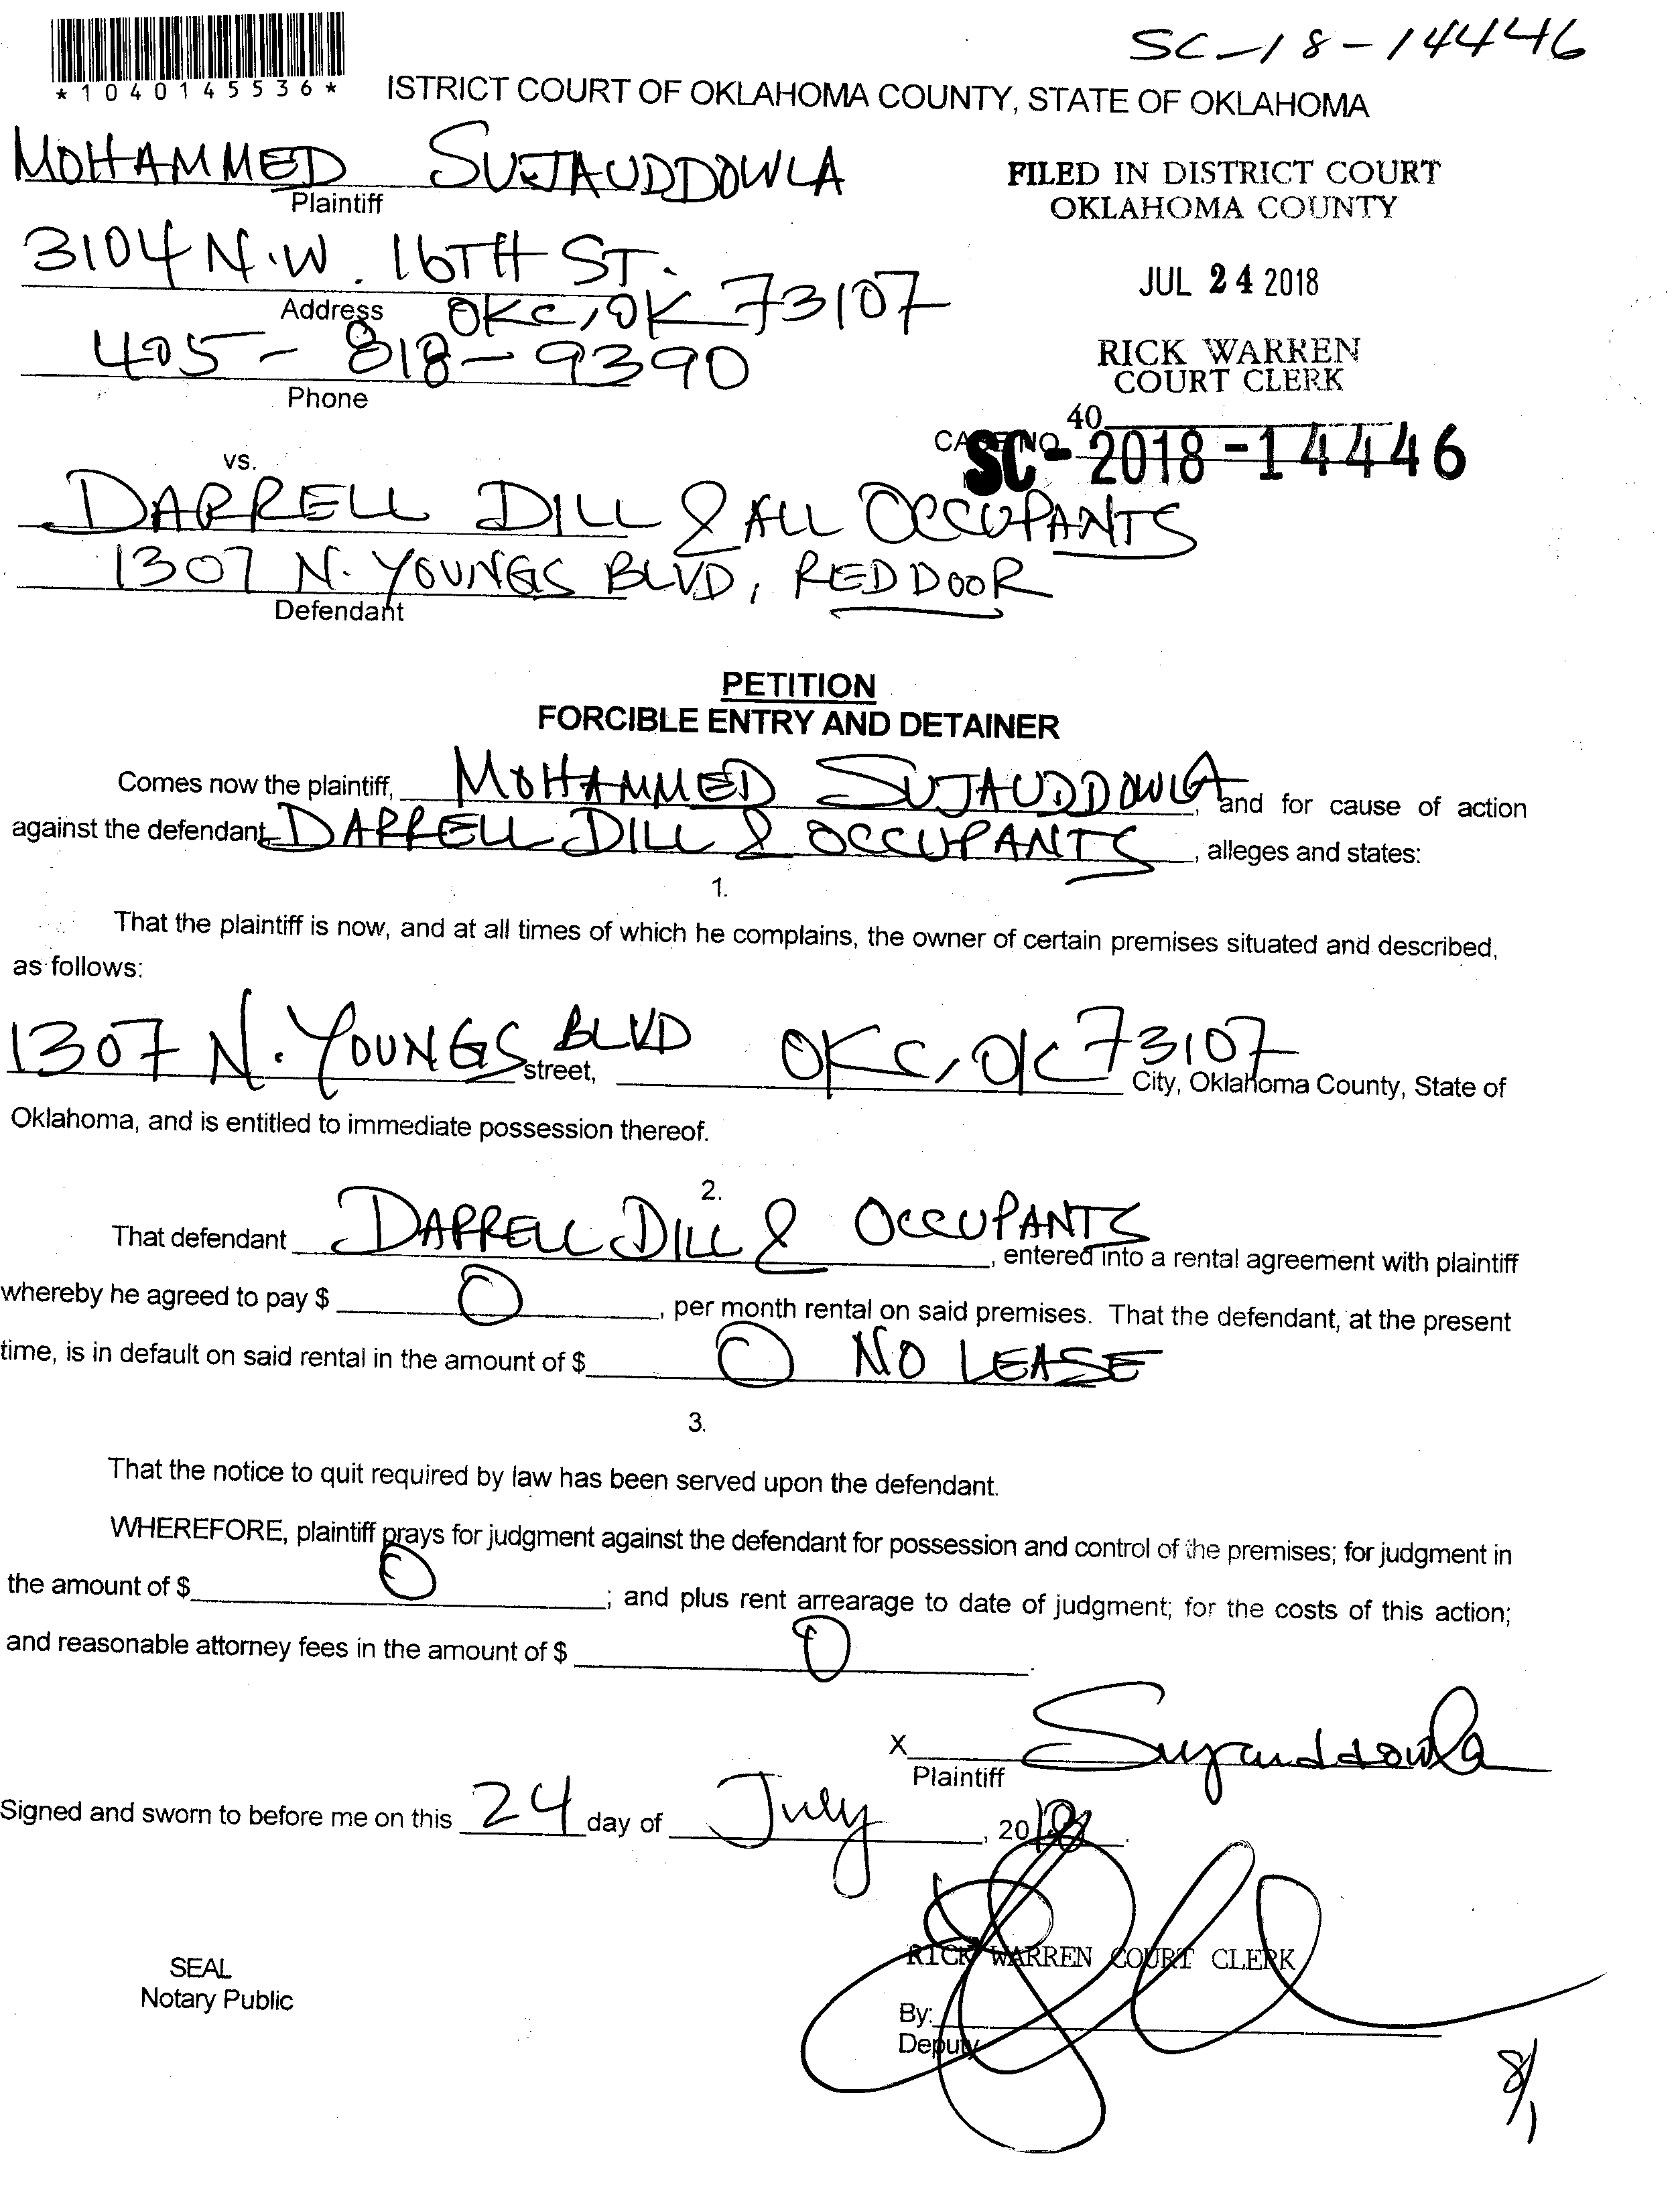 SC-18-14446
*1040145536*
ISTRICT COURT OF OKLAHOMA COUNTY, STATE OF OKLAHOMA
MOHAMMED SUJAUDDOWLA
Plaintiff
FILED IN DISTRICT COURT
OKLAHOMA COUNTY
3104 N.W. 16TH ST.
Address OKC, OK 73107
JUL 24 2018
405-818-9390
Phone
RICK WARREN
COURT CLERK
40
CASE NO. SC-2018-14446
vs.
DARRELL DILL & ALL OCCUPANTS
1307 N. YOUNGS BLVD, RED DOOR
Defendant
PETITION
FORCIBLE ENTRY AND DETAINER
Comes now the plaintiff, MOHAMMED SUJAUDDOWLA, and for cause of action
against the defendant DARRELL DILL & OCCUPANTS, alleges and states:
1.
That the plaintiff is now, and at all times of which he complains, the owner of certain premises situated and described,
as follows:
1307 N. YOUNGS BLVD street, OKC, OK 73107 City, Oklahoma County, State of
Oklahoma, and is entitled to immediate possession thereof.
2.
That defendant DARRELL DILL & OCCUPANTS, entered into a rental agreement with plaintiff
whereby he agreed to pay $ 0, per month rental on said premises. That the defendant, at the present
time, is in default on said rental in the amount of $ 0 NO LEASE
3.
That the notice to quit required by law has been served upon the defendant.
WHEREFORE, plaintiff prays for judgment against the defendant for possession and control of the premises; for judgment in
the amount of $ 0; and plus rent arrearage to date of judgment; for the costs of this action;
and reasonable attorney fees in the amount of $ 0.
X Sujauddowla
Plaintiff
Signed and sworn to before me on this 24 day of July, 2018.
RICK WARREN COURT CLERK
SEAL
Notary Public
By:
Deputy
8/1